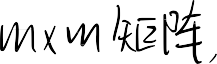 m×m矩阵,